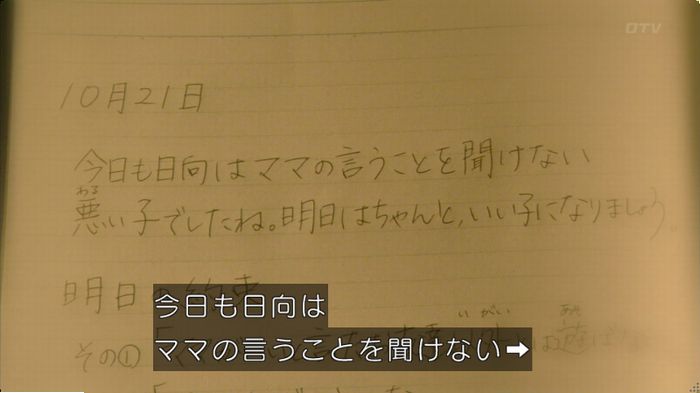 OTV
10月21日
今日も日向はママの言うことを聞けない
わる
悪い子でしたね。明日はちゃんと、いい子になりましょう。
明日の約束
いがい あそ
その① は遊ば
今日も日向は
ママの言うことを聞けない➡